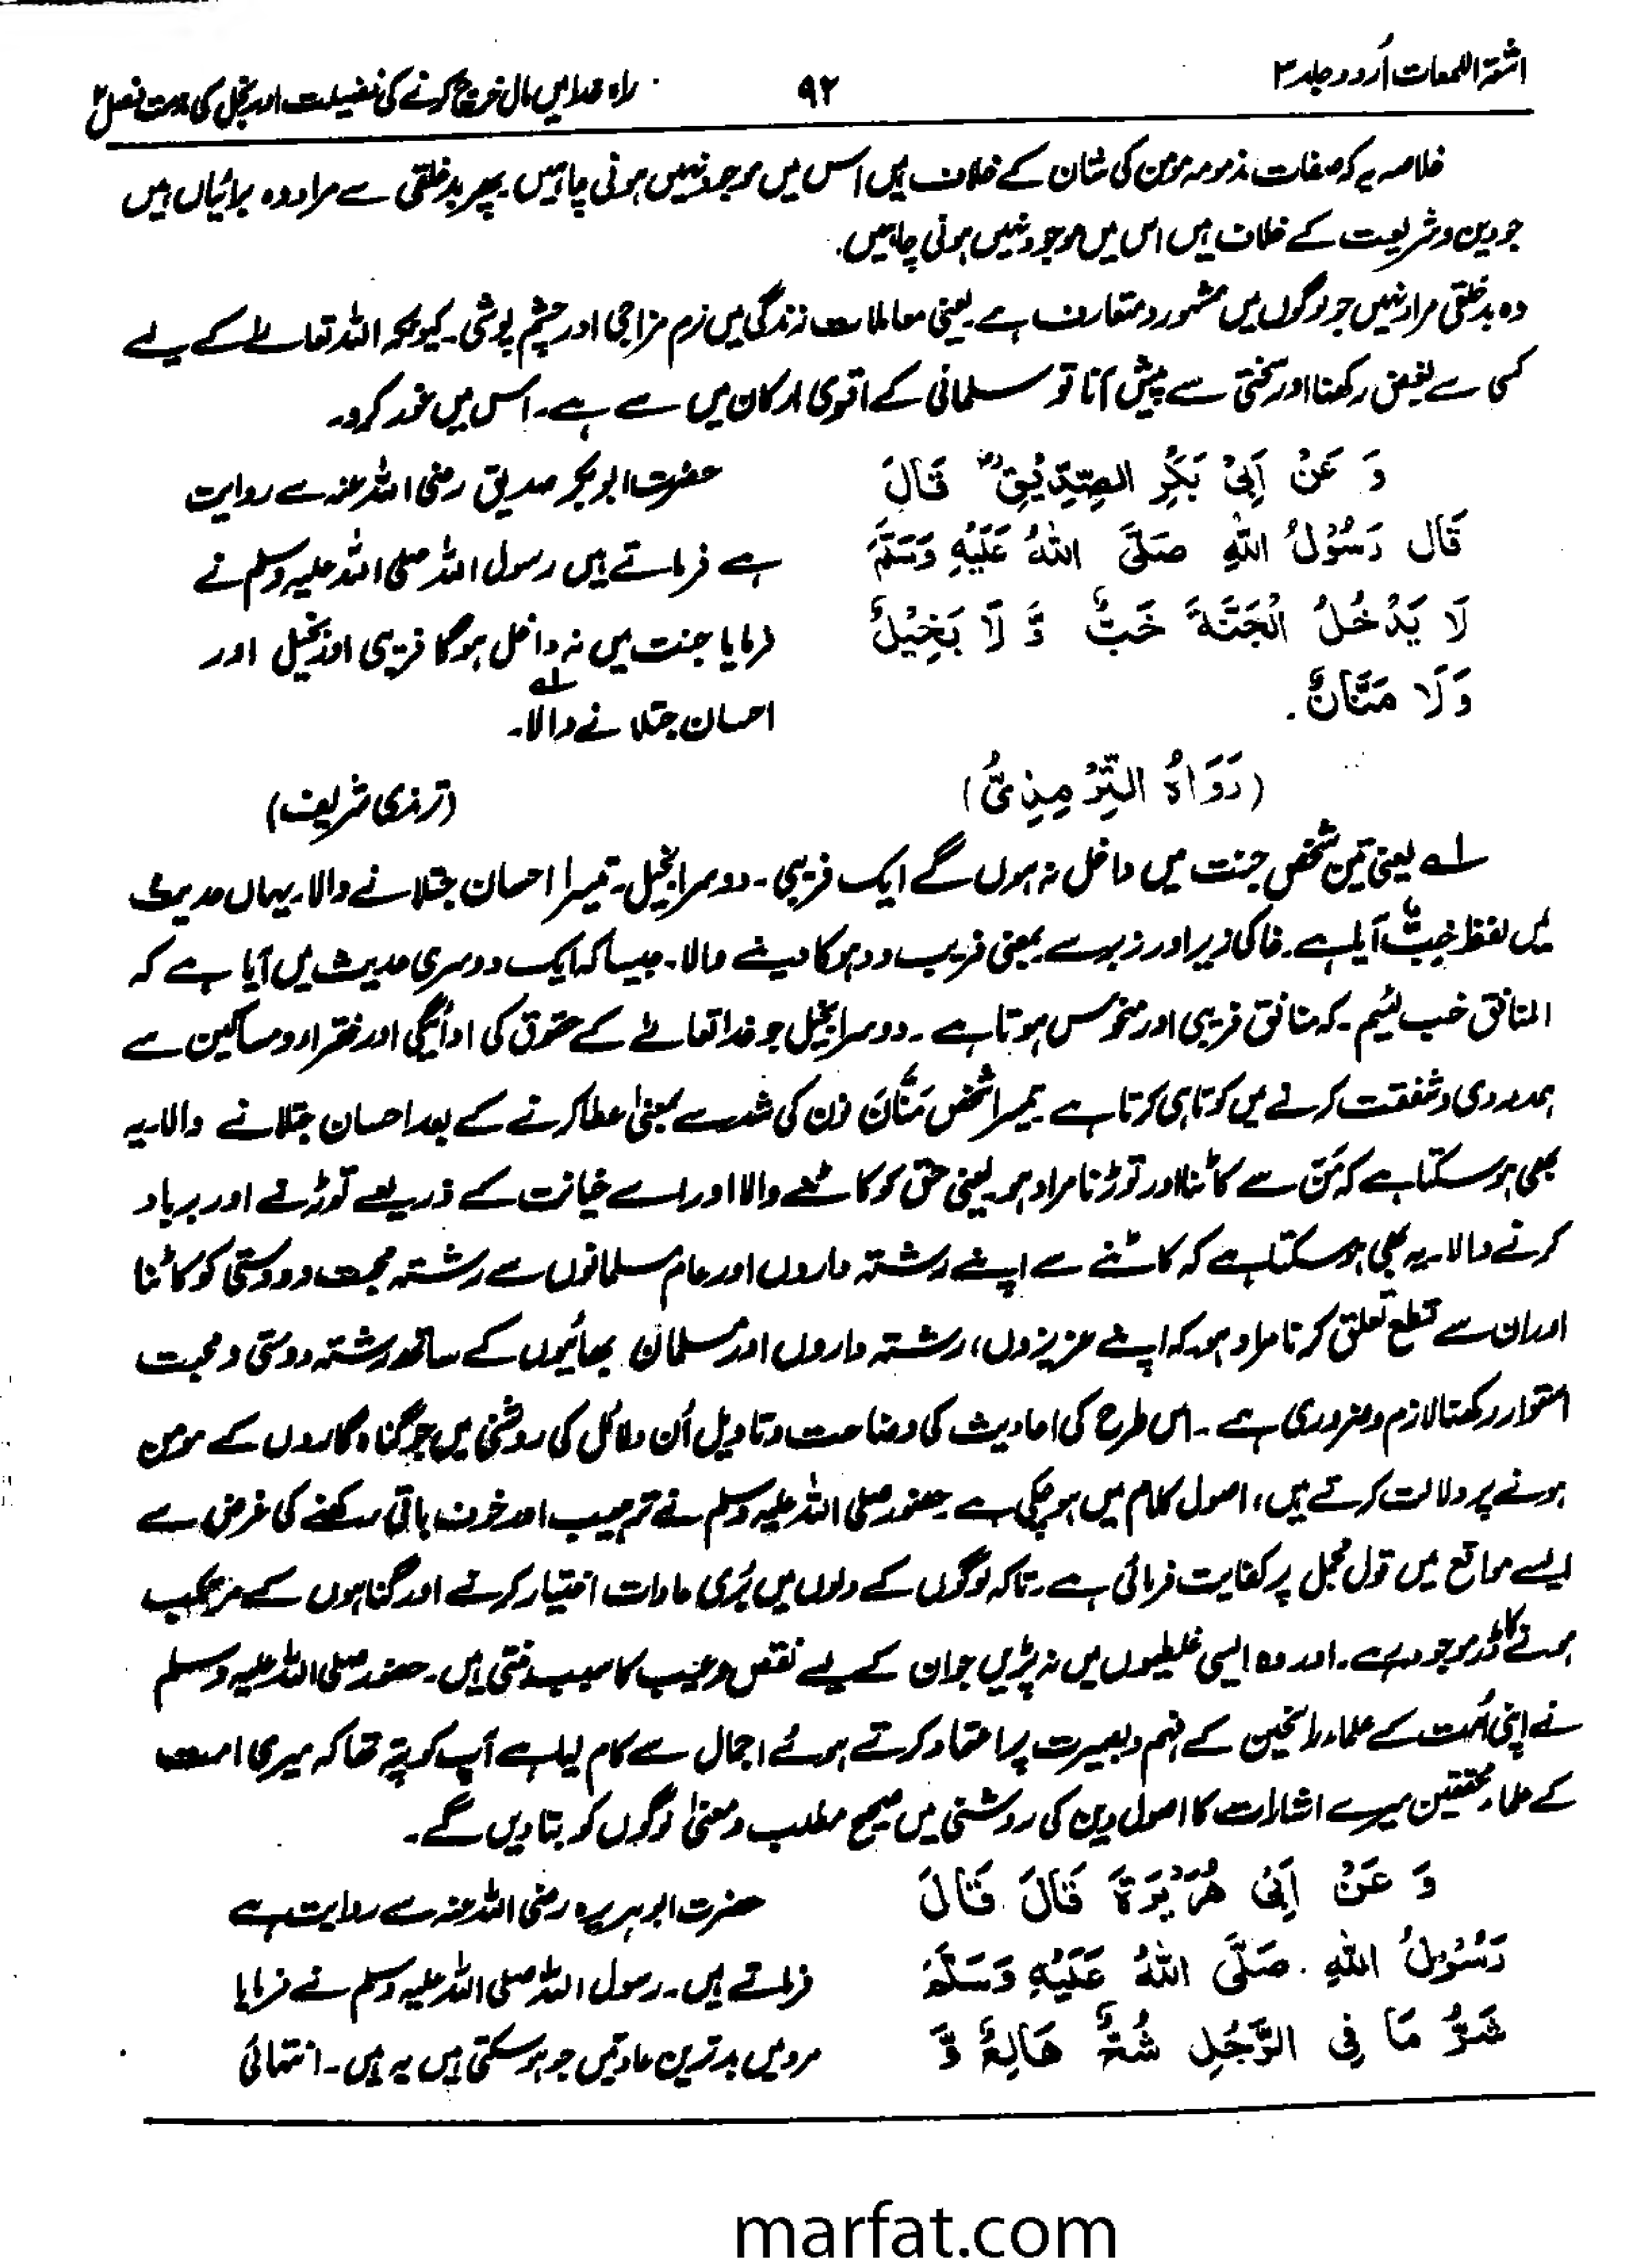 اشعۃ اللمعات اُردو جلد ۳
۹۲
راہ خدا میں مال خرچ کرنے کی فضیلت اور بخل کی مذمت فصل ۲
خلاصہ یہ کہ صفات مذمومہ مومن کی شان کے خلاف ہیں اس میں موجود نہیں ہونی چاہئیں۔ پھر بدخلقی سے مراد وہ برائیاں ہیں
جو دین و شریعت کے خلاف ہیں اس میں موجود نہیں ہونی چاہئیں۔
وہ بدخلقی مراد نہیں جو لوگوں میں مشہور و متعارف ہے یعنی معاملات زندگی میں نرم مزاجی اور چشم پوشی۔ کیونکہ اللہ تعالےٰ کے لیے
کسی سے بغض رکھنا اور سختی سے پیش آنا تو مسلمانی کے اقوی ارکان میں سے ہے۔ اس میں غور کرو۔
وَ عَنْ اَبِیْ بَکْرِ الصِّدِّیْقِ رض قَالَ
قَالَ رَسُوْلُ اللّٰهِ صَلَّی اللّٰهُ عَلَیْهِ وَسَلَّمَ
لَا یَدْخُلُ الْجَنَّةَ خَبٌّ وَّ لَا بَخِیْلٌ
وَلَا مَنَّانٌ.
(رَوَاهُ التِّرْمِذِیُّ)
حضرت ابوبکر صدیق رضی اللہ عنہ سے روایت
ہے فرماتے ہیں رسول اللہ صلی اللہ علیہ وسلم نے
فرمایا جنت میں نہ داخل ہوگا فریبی اور بخیل اور
احسان جتلانے والا۔ لے
(ترمذی شریف)
لے یعنی تین شخص جنت میں داخل نہ ہوں گے ایک فریبی۔ دوسرا بخیل۔ تیسرا احسان جتلانے والا۔ یہاں حدیث
میں لفظ خِبٌّ آیا ہے۔ خا کی زیر اور زبر سے بمعنی فریب و دہوکا دینے والا۔ جیسا کہ ایک دوسری حدیث میں آیا ہے کہ
المنافق خب لئیم۔ کہ منافق فریبی اور منحوس ہوتا ہے۔ دوسرا بخیل جو خدا تعالےٰ کے حقوق کی ادائیگی اور فقرار و مساکین سے
ہمدردی و شفقت کرنے میں کوتاہی کرتا ہے تیسرا شخص مَنَّانَ نون کی شد سے بمعنیٰ عطا کرنے کے بعد احسان جتلانے والا۔ یہ
بھی ہو سکتا ہے کہ مَنّ سے کاٹنا اور توڑنا مراد ہو۔ یعنی حق کو کاٹنے والا اور اسے خیانت کے ذریعے توڑنے اور برباد
کرنے والا۔ یہ بھی ہو سکتا ہے کہ کاٹنے سے اپنے رشتہ داروں اور عام مسلمانوں سے رشتہ محبت و دوستی کو کاٹنا
اور ان سے قطع تعلق کرنا مراد ہو۔ کہ اپنے عزیزوں، رشتہ داروں اور مسلمان بھائیوں کے ساتھ رشتہ دوستی و محبت
استوار رکھنا لازم و ضروری ہے۔ اس طرح کی احادیث کی وضاحت و تاویل اُن دلائل کی روشنی میں جو گناہ گاروں کے مومن
ہونے پر دلالت کرتے ہیں، اصول کلام میں ہو چکی ہے۔ حضور صلی اللہ علیہ وسلم نے ترہیب اور خوف باقی رکھنے کی غرض سے
ایسے مواقع میں قول مجمل پر کفایت فرمائی ہے۔ تاکہ لوگوں کے دلوں میں بُری عادات اختیار کرنے اور گناہوں کے مرتکب
ہونے کا ڈر موجود رہے۔ اور وہ ایسی غلطیوں میں نہ پڑیں جو ان کے لیے نقص و عیب کا سبب بنتی ہیں۔ حضور صلی اللہ علیہ وسلم
نے اپنی اُمت کے علماء راسخین کے فہم و بصیرت پر اعتماد کرتے ہوئے اجمال سے کام لیا ہے آپ کو پتہ تھا کہ میری امت
کے علماء محققین میرے اشارات کا اصول دین کی روشنی میں صحیح مطلب و معنیٰ لوگوں کو بتا دیں گے۔
وَ عَنْ اَبِیْ هُرَیْرَةَ قَالَ قَالَ
رَسُوْلُ اللّٰهِ صَلَّی اللّٰهُ عَلَیْهِ وَسَلَّمَ
شَرُّ مَا فِی الرَّجُلِ شُحٌّ هَالِعٌ وَّ
حضرت ابوہریرہ رضی اللہ عنہ سے روایت ہے
فرماتے ہیں۔ رسول اللہ صلی اللہ علیہ وسلم نے فرمایا
مرد میں بدترین عادتیں جو ہو سکتی ہیں یہ ہیں۔ انتہائی
marfat.com